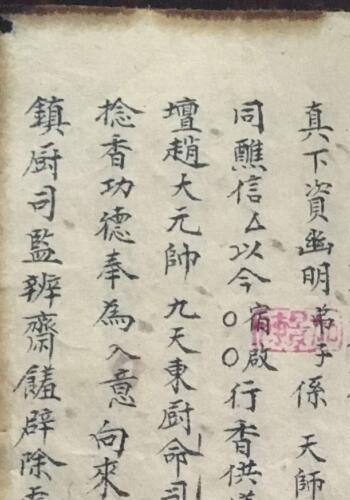 真下資幽明弟子係天師
同醮信厶以今宿啟○○行香供
壇趙大元帥九天東厨命司
捻香功德奉為入意向來
鎮厨司監辦齋饈辟除